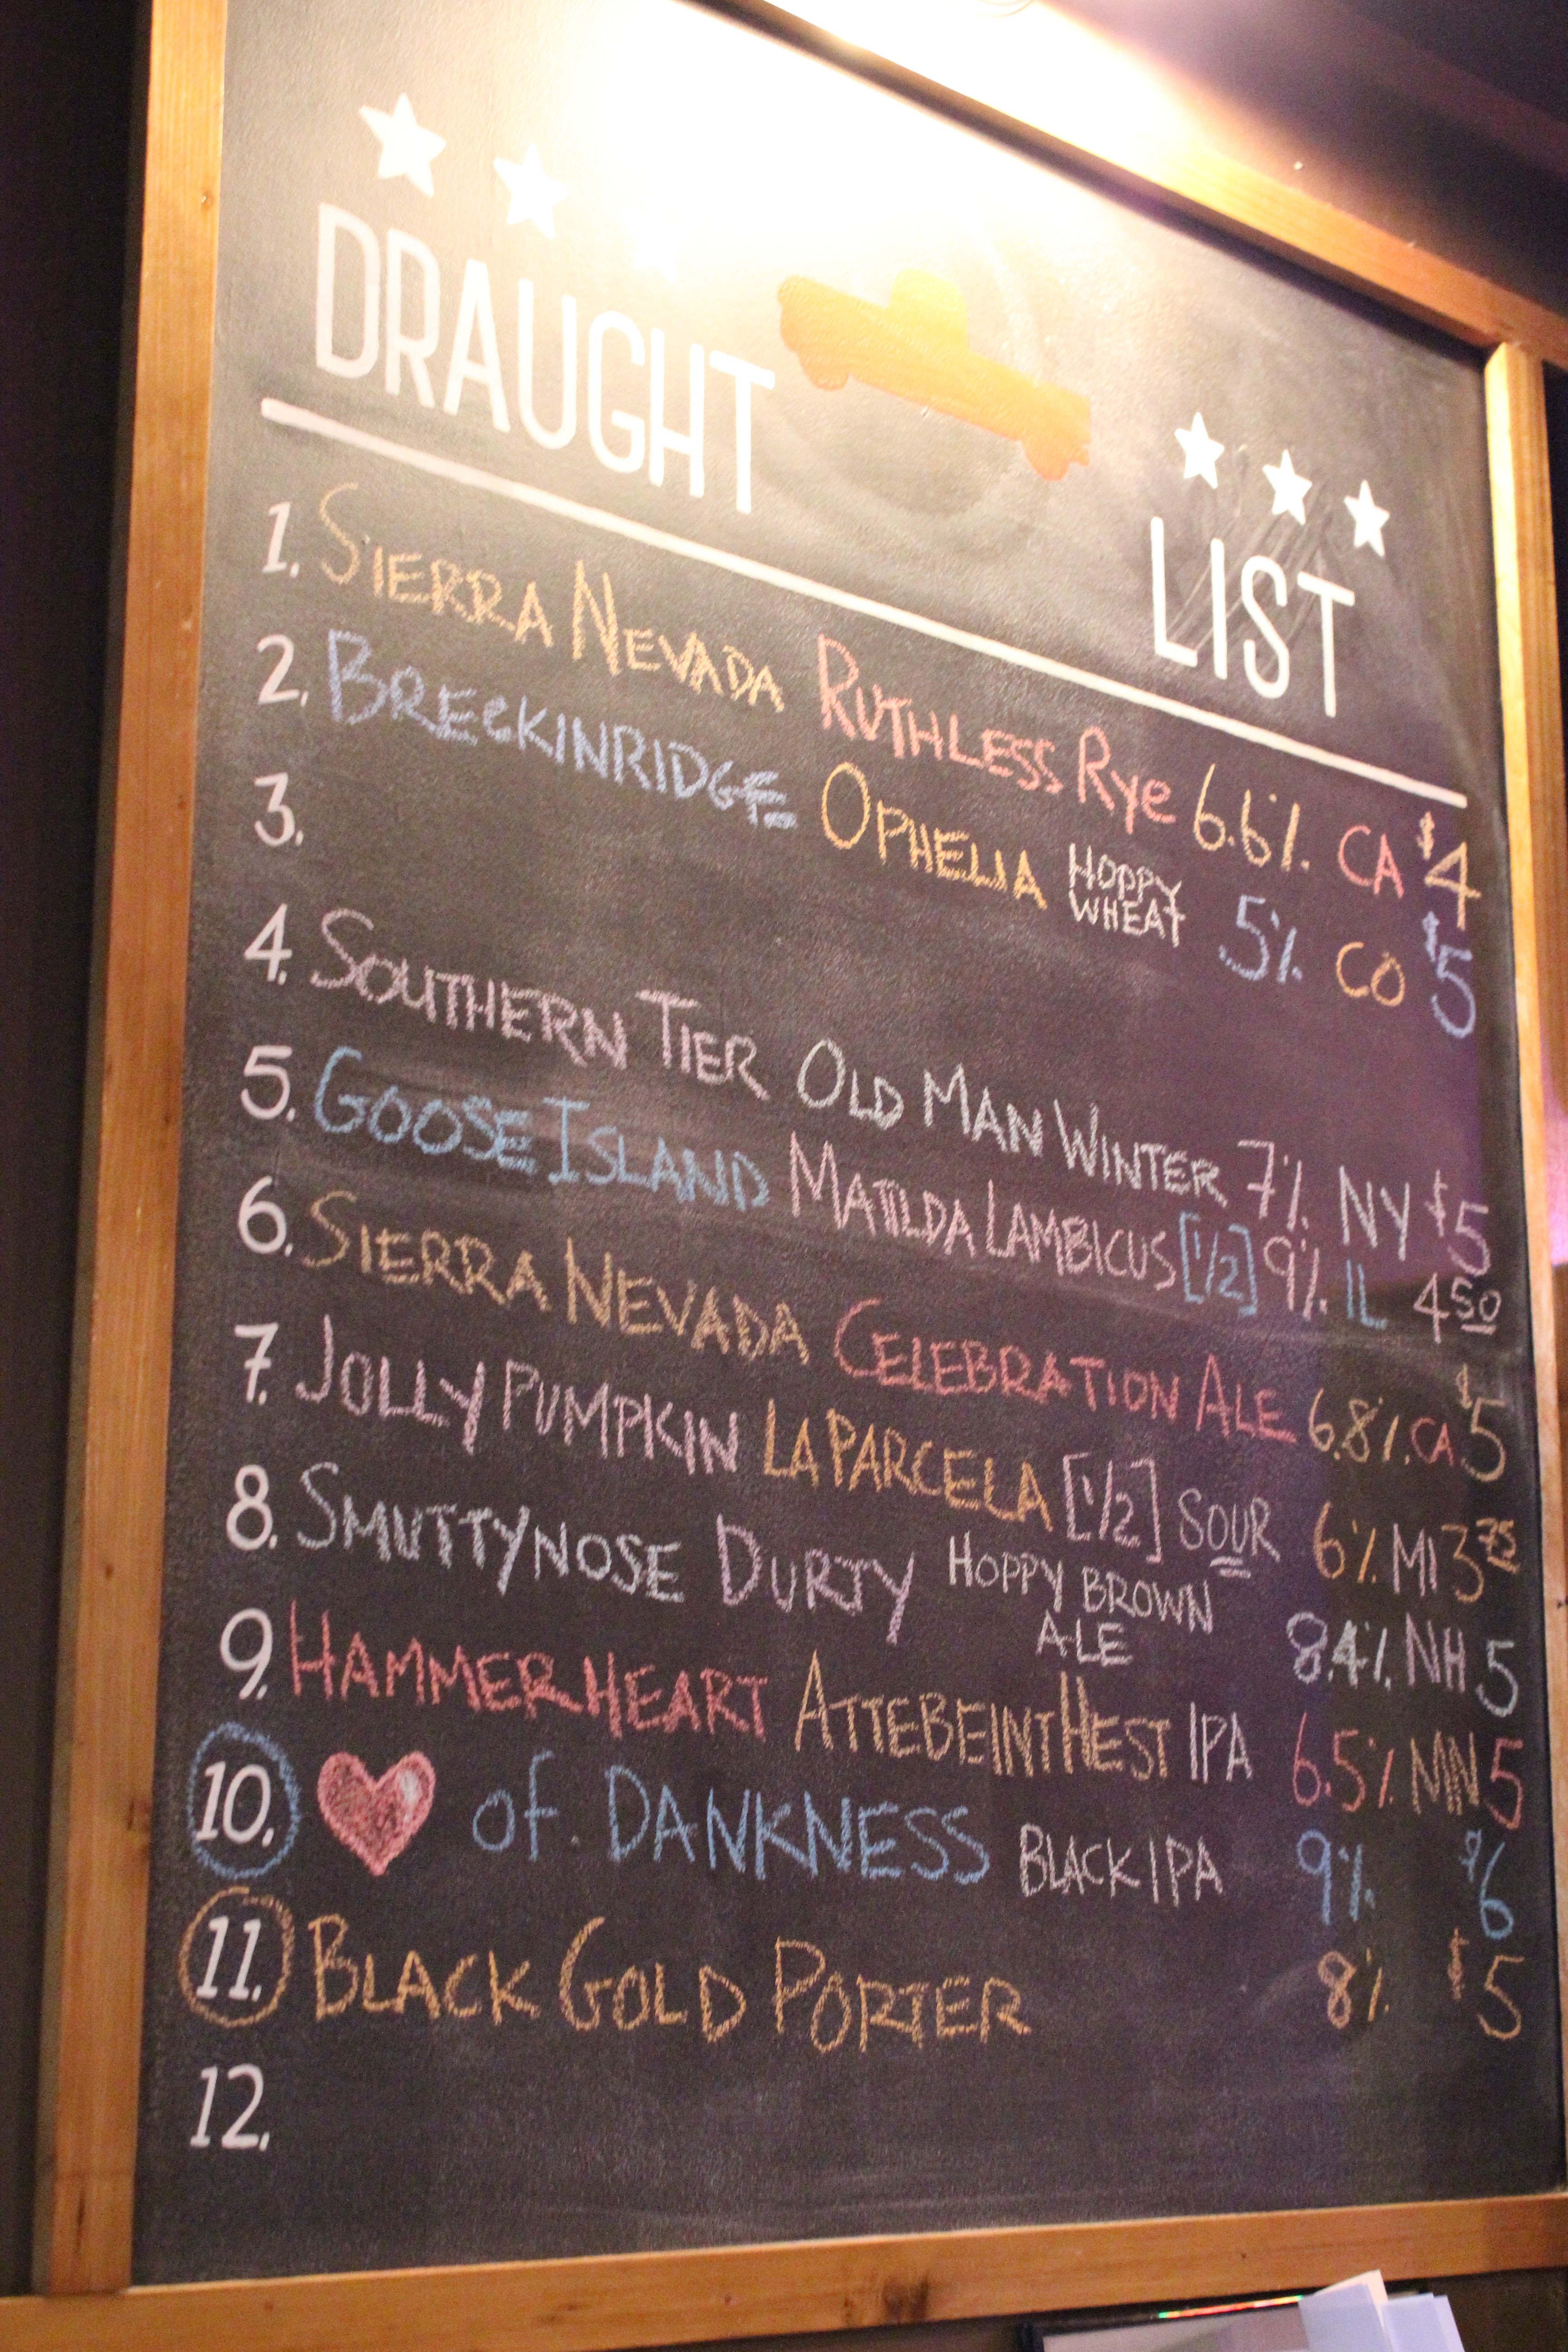 DRAUGHT LIST
1. SIERRA NEVADA RUTHLESS RYE 6.6% CA $4
2. BRECKINRIDGE OPHELIA HOPPY WHEAT 5% CO $5
3.
4. SOUTHERN TIER OLD MAN WINTER 7% NY $5
5. GOOSE ISLAND MATILDA LAMBICUS [1/2] 9% IL 4 50
6. SIERRA NEVADA CELEBRATION ALE 6.8% CA $5
7. JOLLY PUMPKIN LA PARCELA [1/2] SOUR 6% MI 3 75
8. SMUTTYNOSE DURTY HOPPY BROWN ALE 8.4% NH 5
9. HAMMERHEART ATTEBEINTHEST IPA 6.5% MN 5
10. ♥ of DANKNESS BLACK IPA 9% $6
11. BLACK GOLD PORTER 8% $5
12.